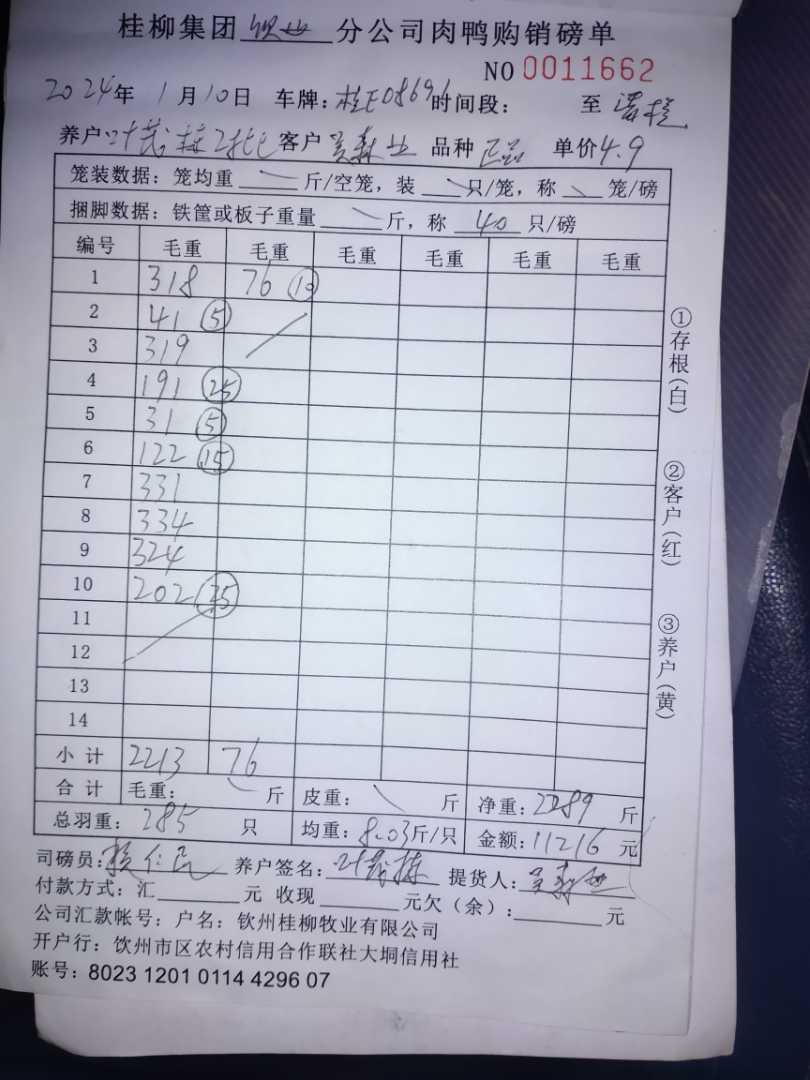 桂柳集团 钦州 分公司肉鸭购销磅单
NO 0011662
2024年 1月10日 车牌: 桂E08696 时间段: 至
养户 叶茂栋 2批 客户 吴森业 品种 正品 单价4.9
笼装数据: 笼均重 斤/空笼, 装 只/笼, 称 笼/磅
捆脚数据: 铁筐或板子重量 斤, 称 40 只/磅
编号 毛重 毛重 毛重 毛重 毛重 毛重
1 318 76 (10)
2 41 (5)
3 319
4 191 (25)
5 31 (5)
6 122 (15)
7 331
8 334
9 324
10 202 (25)
11
12
13
14
小计 2213 76
合计 毛重: 斤 皮重: 斤 净重: 2289 斤
总羽重: 285 只 均重: 8.03斤/只 金额: 11216 元
司磅员: 养户签名: 叶茂栋 提货人: 吴森业
付款方式: 汇 元 收现 元欠(余): 元
公司汇款帐号: 户名: 钦州桂柳牧业有限公司
开户行: 饮州市区农村信用合作联社大垌信用社
账号: 8023 1201 0114 4296 07
①存根(白)
②客户(红)
③养户(黄)